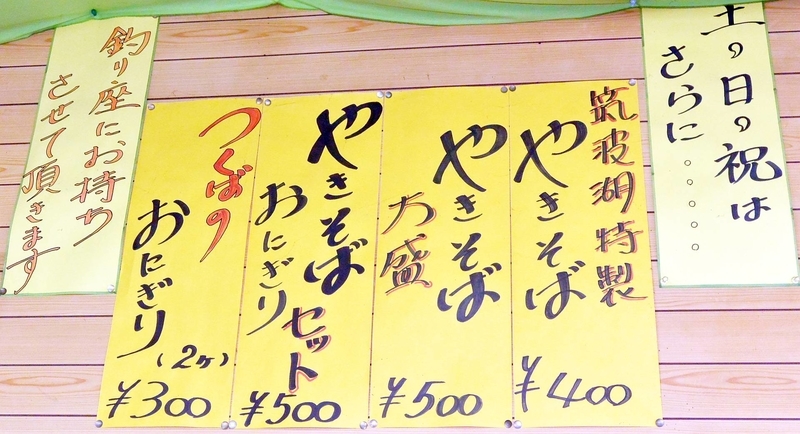 土・日・祝は
さらに。。。。。
筑波湖特製
やきそば
¥400
やきそば
大盛
¥500
やきそば
おにぎり
セット
¥500
つくばの
おにぎり
(2ヶ)
¥300
釣り座にお持ち
させて頂きます